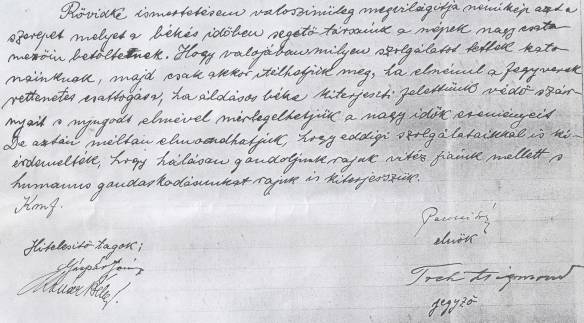 Rövidke ismertetésem valoszinüleg megvilágitja némikép azt a
szerepet melyet a békés időben segető társaink a népek nagy csata
mezőin betöltetnek. Hogy valojában milyen szolgálatot tettek kato-
náinknak, majd csak akkor itélhetjük meg, ha elmémül a fegyverek
rettenetes csattogása, ha áldásos béke kiterjeszti felettünk védő szár-
nyait s nyugodt elmével mérlegelhetjük a nagy idők eseményeit
De aztán méltán elmondhatjuk, hogy eddigi szolgálataikkal is ki-
érdemelték, hogy hálásan gondoljunk rájuk vitéz fiaink mellett s
humanus gondoskodásunkat rájuk is kiterjesszük.
Kmf.
Hitelesitő tagok;
elnök
Gáspár János
Toch Zsigmond
jegyző